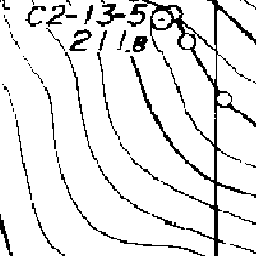 C2-13-5
211.8